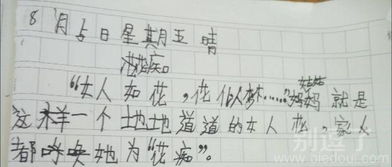 8月5日星期五 晴
“女人如花，花似梦……”姑姑就是
这样一个地地道道的女人花，家人
都呼唤她为“花痴”。
别逗了